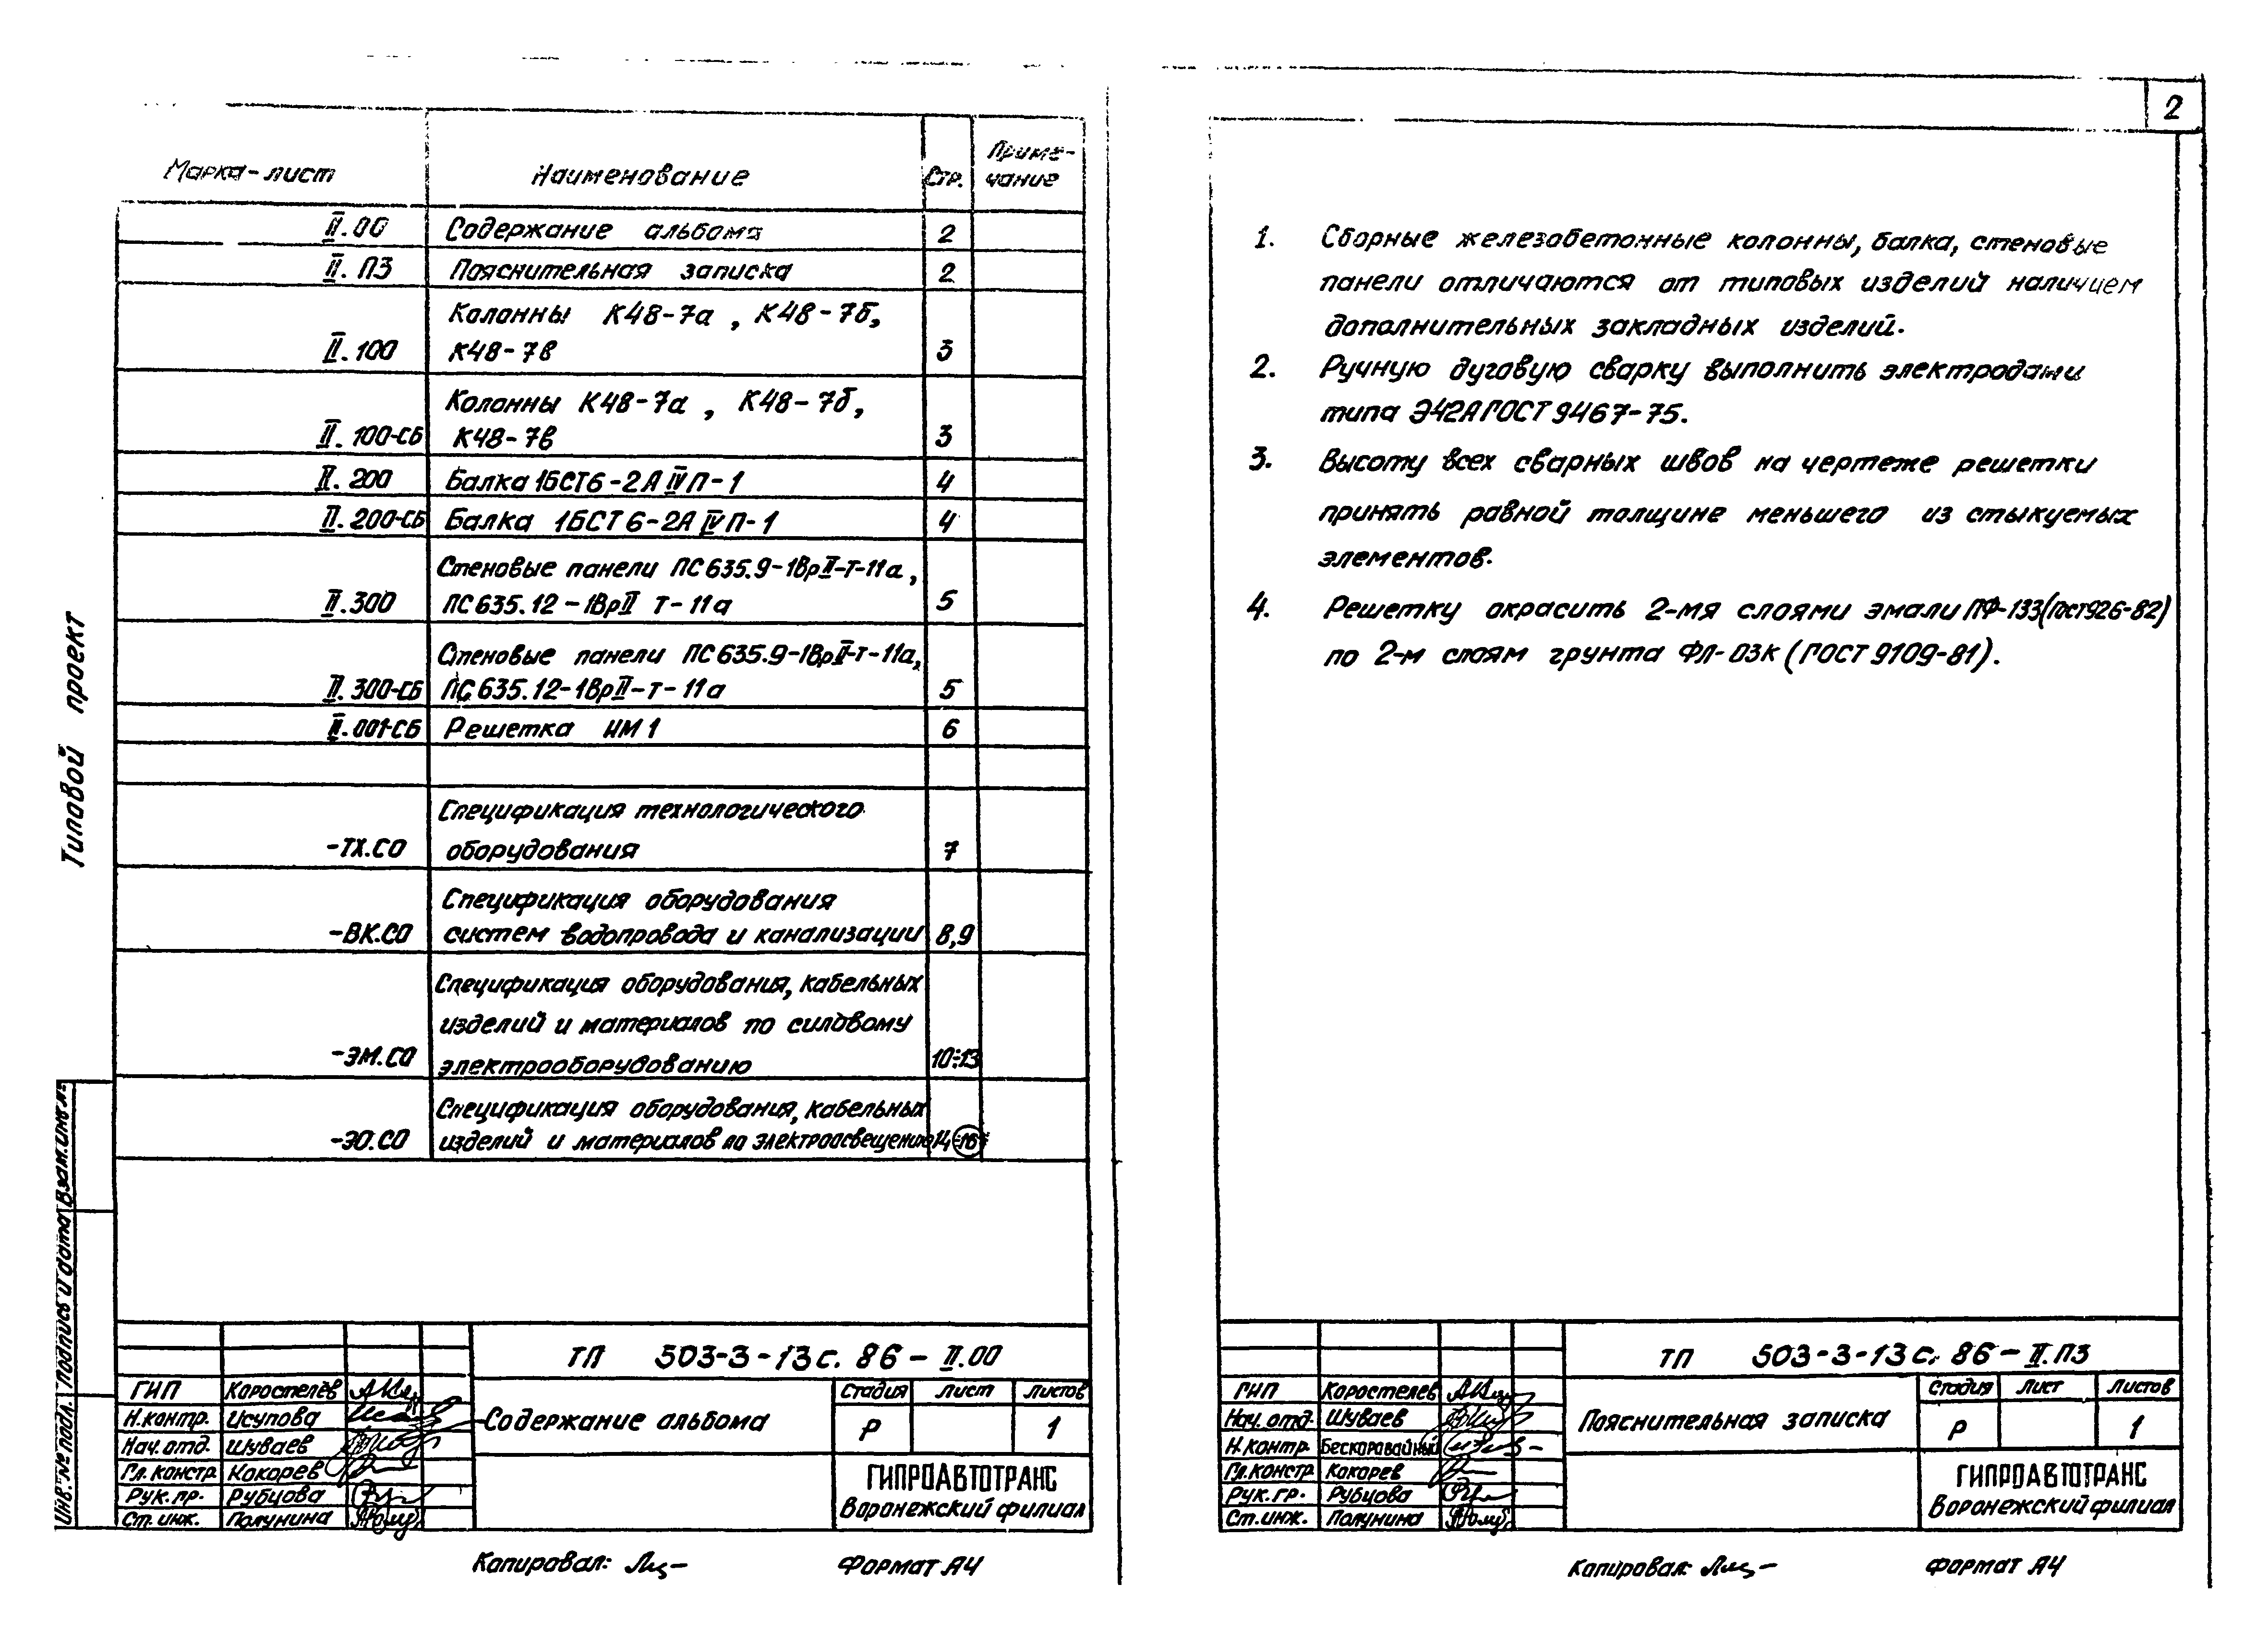 Марка-лист Наименование Стр. Приме-
чание
II.00 Содержание альбома 2
II.ПЗ Пояснительная записка 2
Колонны К48-7а, К48-7б,
II.100 К48-7в 3
Колонны К48-7а, К48-7б,
II.100-СБ К48-7в 3
II.200 Балка 1БСТ6-2АIVП-1 4
II.200-СБ Балка 1БСТ6-2АIVП-1 4
Стеновые панели ПС635.9-1ВрII-Т-11а,
II.300 ПС635.12-1ВрII Т-11а 5
Стеновые панели ПС635.9-1ВрII-т-11а,
II.300-СБ ПС635.12-1ВрII-т-11а 5
II.001-СБ Решетка ИМ1 6
Спецификация технологического
-ТХ.СО оборудования 7
Спецификация оборудования
-ВК.СО систем водопровода и канализации 8,9
Спецификация оборудования, кабельных
изделий и материалов по силовому
-ЭМ.СО электрооборудованию 10÷13
Спецификация оборудования, кабельных
-ЭО.СО изделий и материалов по электроосвещению 14÷16
Типовой проект
Инв. № подл. Подпись и дата Взам.инв.№
ТП 503-3-13с.86-II.00
ГИП Коростелёв
Н.контр. Исупова
Нач.отд. Шуваев
Гл.констр Кокорев
Рук.гр. Рубцова
Ст.инж. Полунина
Содержание альбома
Стадия Лист Листов
Р 1
ГИПРОАВТОТРАНС
Воронежский филиал
Копировал: Формат А4
2
1. Сборные железобетонные колонны, балка, стеновые
панели отличаются от типовых изделий наличием
дополнительных закладных изделий.
2. Ручную дуговую сварку выполнить электродами
типа Э42А ГОСТ 9467-75.
3. Высоту всех сварных швов на чертеже решетки
принять равной толщине меньшего из стыкуемых
элементов.
4. Решетку окрасить 2-мя слоями эмали ПФ-133(Гост926-82)
по 2-м слоям грунта ФЛ-03К (ГОСТ 9109-81).
ТП 503-3-13с.86-II.ПЗ
ГИП Коростелев
Нач.отд. Шуваев
Н.контр. Бескоровайный
Гл.констр Кокорев
Рук.гр. Рубцова
Ст.инж. Полунина
Пояснительная записка
Стадия Лист Листов
Р 1
ГИПРОАВТОТРАНС
Воронежский филиал
Копировал: Формат А4